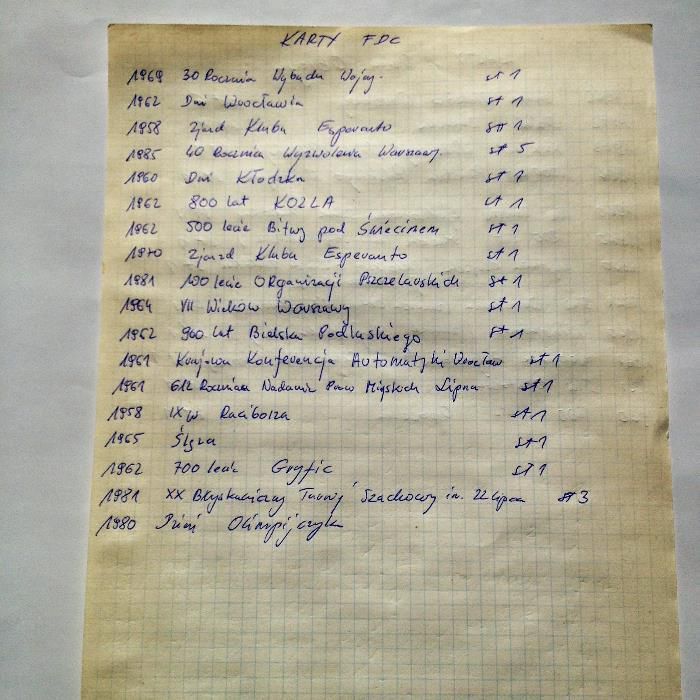 KARTY FDC
1969 30 Rocznia Wybuchu Wojny. st 1
1962 Dni Wrocławia st 1
1958 Zjazd Klubu Esperanto st 1
1985 40 Rocznica Wyzwolenia Warszawy. st 5
1960 Dni Kłodzka st 1
1962 800 lat KOZLA st 1
1962 500 lecie Bitwy pod Świecinem st 1
1970 Zjazd Klubu Esperanto st 1
1981 100 lecie ORganizacji Pszczelarskich st 1
1964 VII Wieków Warszawy st 1
1962 900 lat Bielska Podlaskiego st 1
1961 Krajowa Konferencja Automatyki Wrocław st 1
1961 612 Rocznica Nadania Praw Miejskich Lipna st 1
1958 IX w Raciborza st 1
1965 Ślęza st 1
1962 700 lecie Gryfic st 1
1981 XX Błyskawiczny Turniej Szachowy im. 22 Lipca st 3
1980 Dzień Olimpijczyka